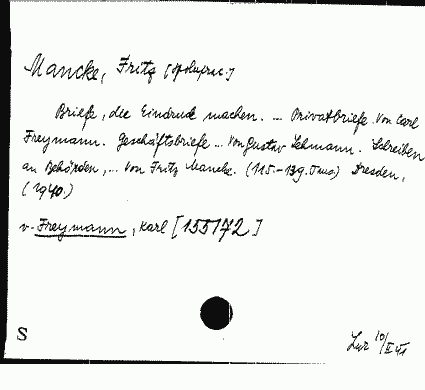 Mancke, Fritz [spoluprac.]
Briefe, die Eindruck machen. ... Privatbriefe. Von Carl
Freymann. Geschäftsbriefe ... Von Gustav Lehmann. Schreiben
an Behörden, ... Von Fritz Mancke. (115.-139. Taus.) Dresden,
(1940.)
v. Freymann, Karl [155172]
S